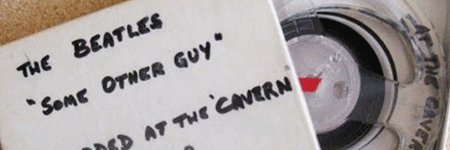 THE BEATLES
"SOME OTHER GUY"
AT THE CAVERN
AT THE CAVERN